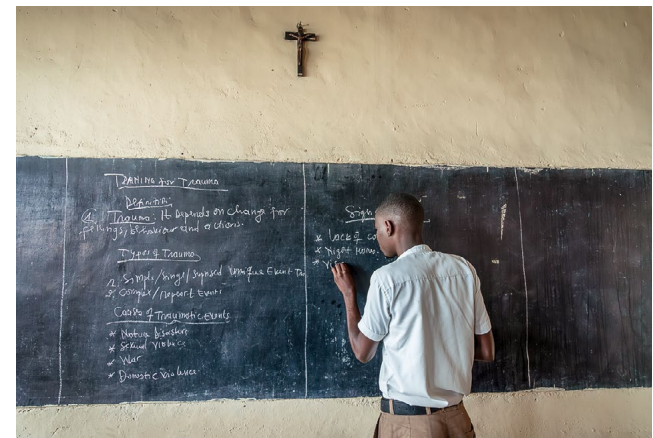 TRANING for TRAUMA
Definition:
Trauma. It Depends on change for
feelings, behaviour and actions.
Types of Trauma
1. Simple/single/ Unique Event
2. Complex/repeart Event
Causes of Traumatic events
* Natural Disasters
* Sexual Violence
* War
* Domestic Violence
Sign
* Lack of co
* Night
* Vi